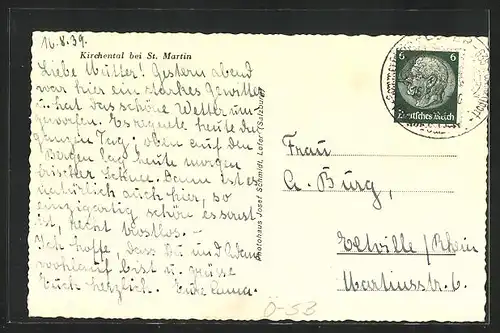 16.8.39.
Kirchental bei St. Martin
Liebe Mutter! Gestern abend
war hier ein starkes Gewitter
u. hat das schöne Wetter um-
geworfen. Es regnete heute den
ganzen Tag; oben auf den
Bergen lag heute morgen
frischer Schnee. Dann ist es
natürlich auch hier, so
einzigartig schön es sonst
ist, recht trostlos. –
Ich hoffe, dass Du und
wohlauf bist u. grüsse
Euch herzlich. Eure Anna.
Photohaus Josef Schmidt, Lofer (Salzburg)
6 6
Deutsches Reich
Frau
A. Burg,
Eltville / Rhein
Martinsstr. 6.
Ö-53